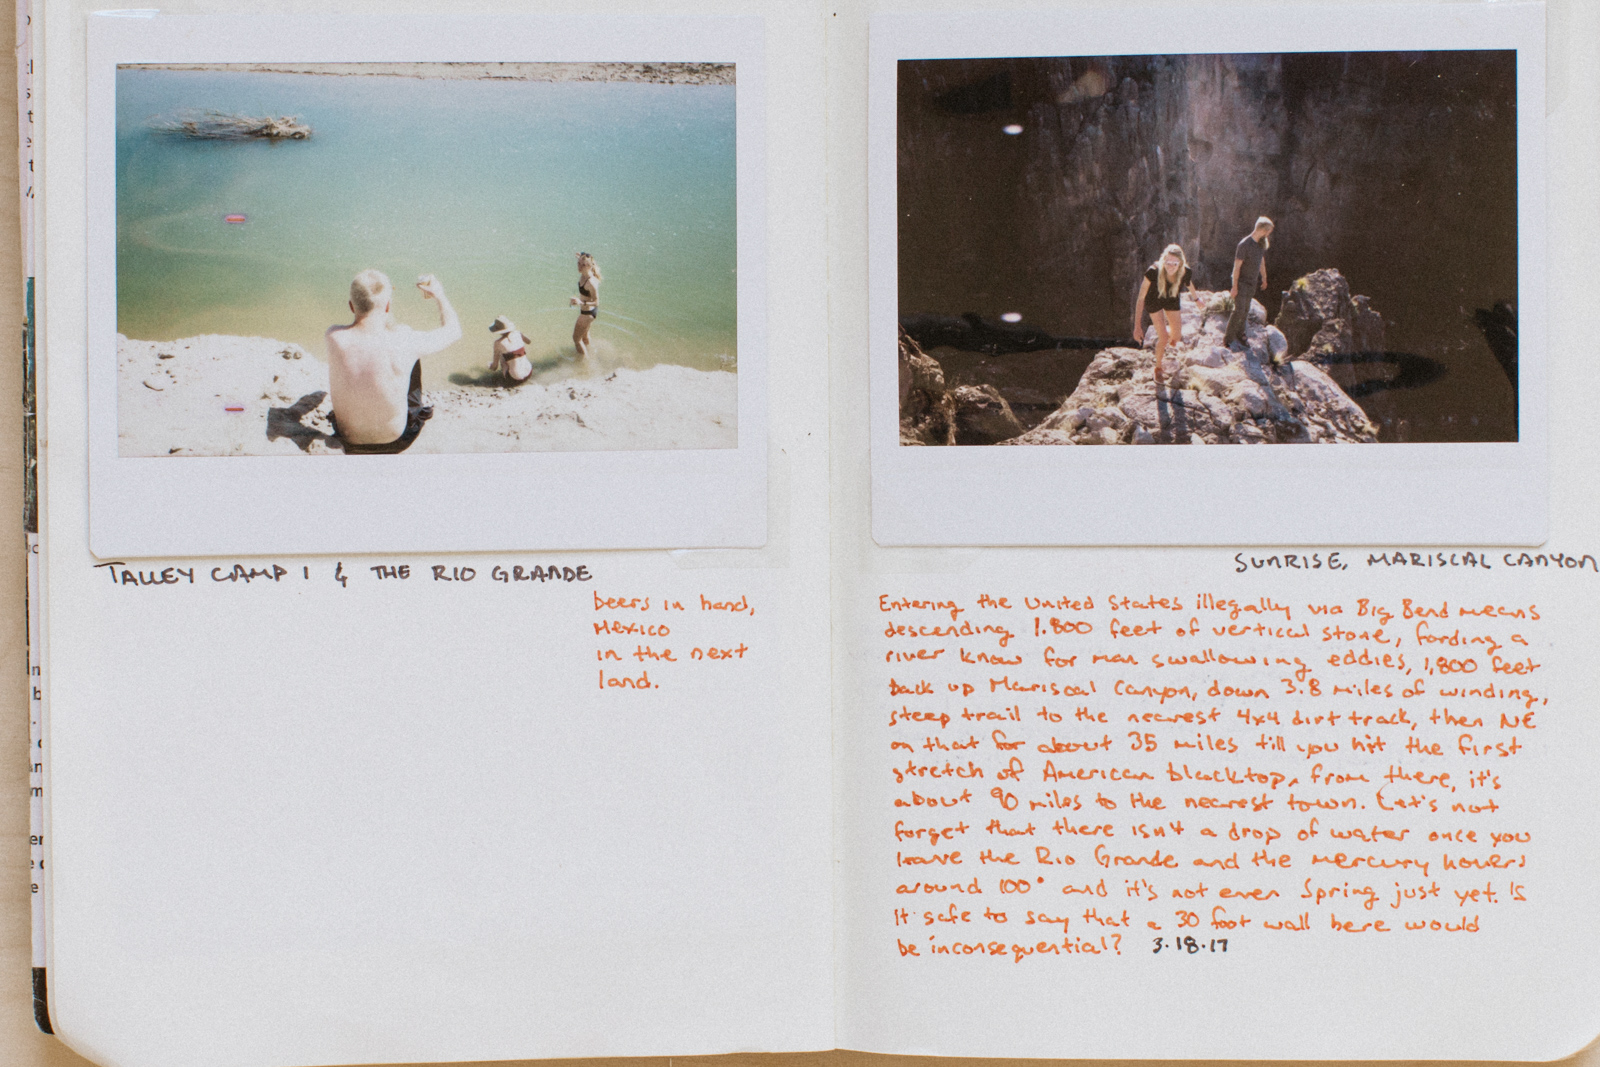 TALLEY CAMP 1 & THE RIO GRANDE
beers in hand,
Mexico
in the next
land.
SUNRISE, MARISCAL CANYON
Entering the United States illegally via Big Bend means
descending 1,800 feet of vertical stone, fording a
river know for man swallowing eddies, 1,800 feet
back up Mariscal Canyon, down 3.8 miles of winding,
steep trail to the nearest 4x4 dirt track, then NE
on that for about 35 miles till you hit the first
stretch of American blacktop, from there, it's
about 90 miles to the nearest town. Let's not
forget that there isn't a drop of water once you
leave the Rio Grande and the mercury hovers
around 100° and it's not even Spring just yet. Is
it safe to say that a 30 foot wall here would
be inconsequential? 3.18.17